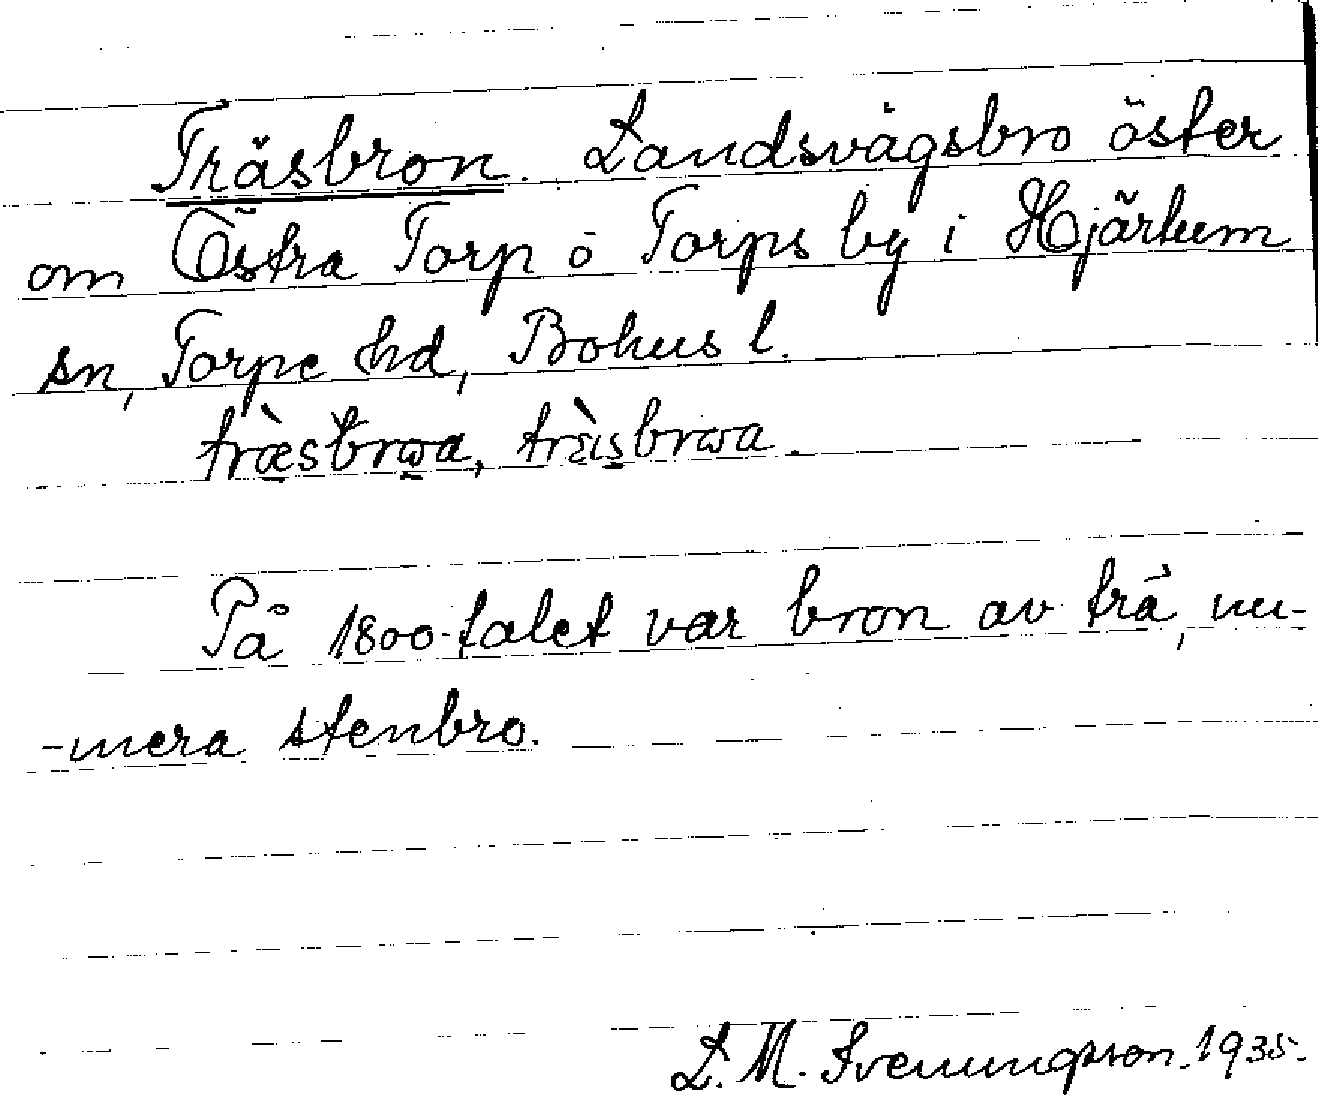 Träsbron. Landsvägsbro öster
om Östra Torp ö Torps by i Hjärtum
sn, Torpe hd, Bohus l.
træ̀sbrωa, træ̀isbrωa.
På 1800-talet var bron av trä, nu-
-mera stenbro.
L. M. Svenungsson. 1935.